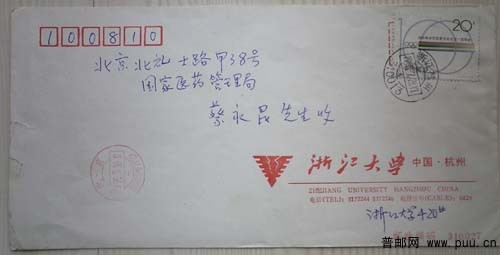 100810
20分
北京北礼士路甲38号
国家医药管理局
蔡永昆先生收
浙江大学 中国·杭州
ZHEJIANG UNIVERSITY HANGZHOU CHINA
浙江大学420#
邮政编码 310027
普邮网 www.puu.cn